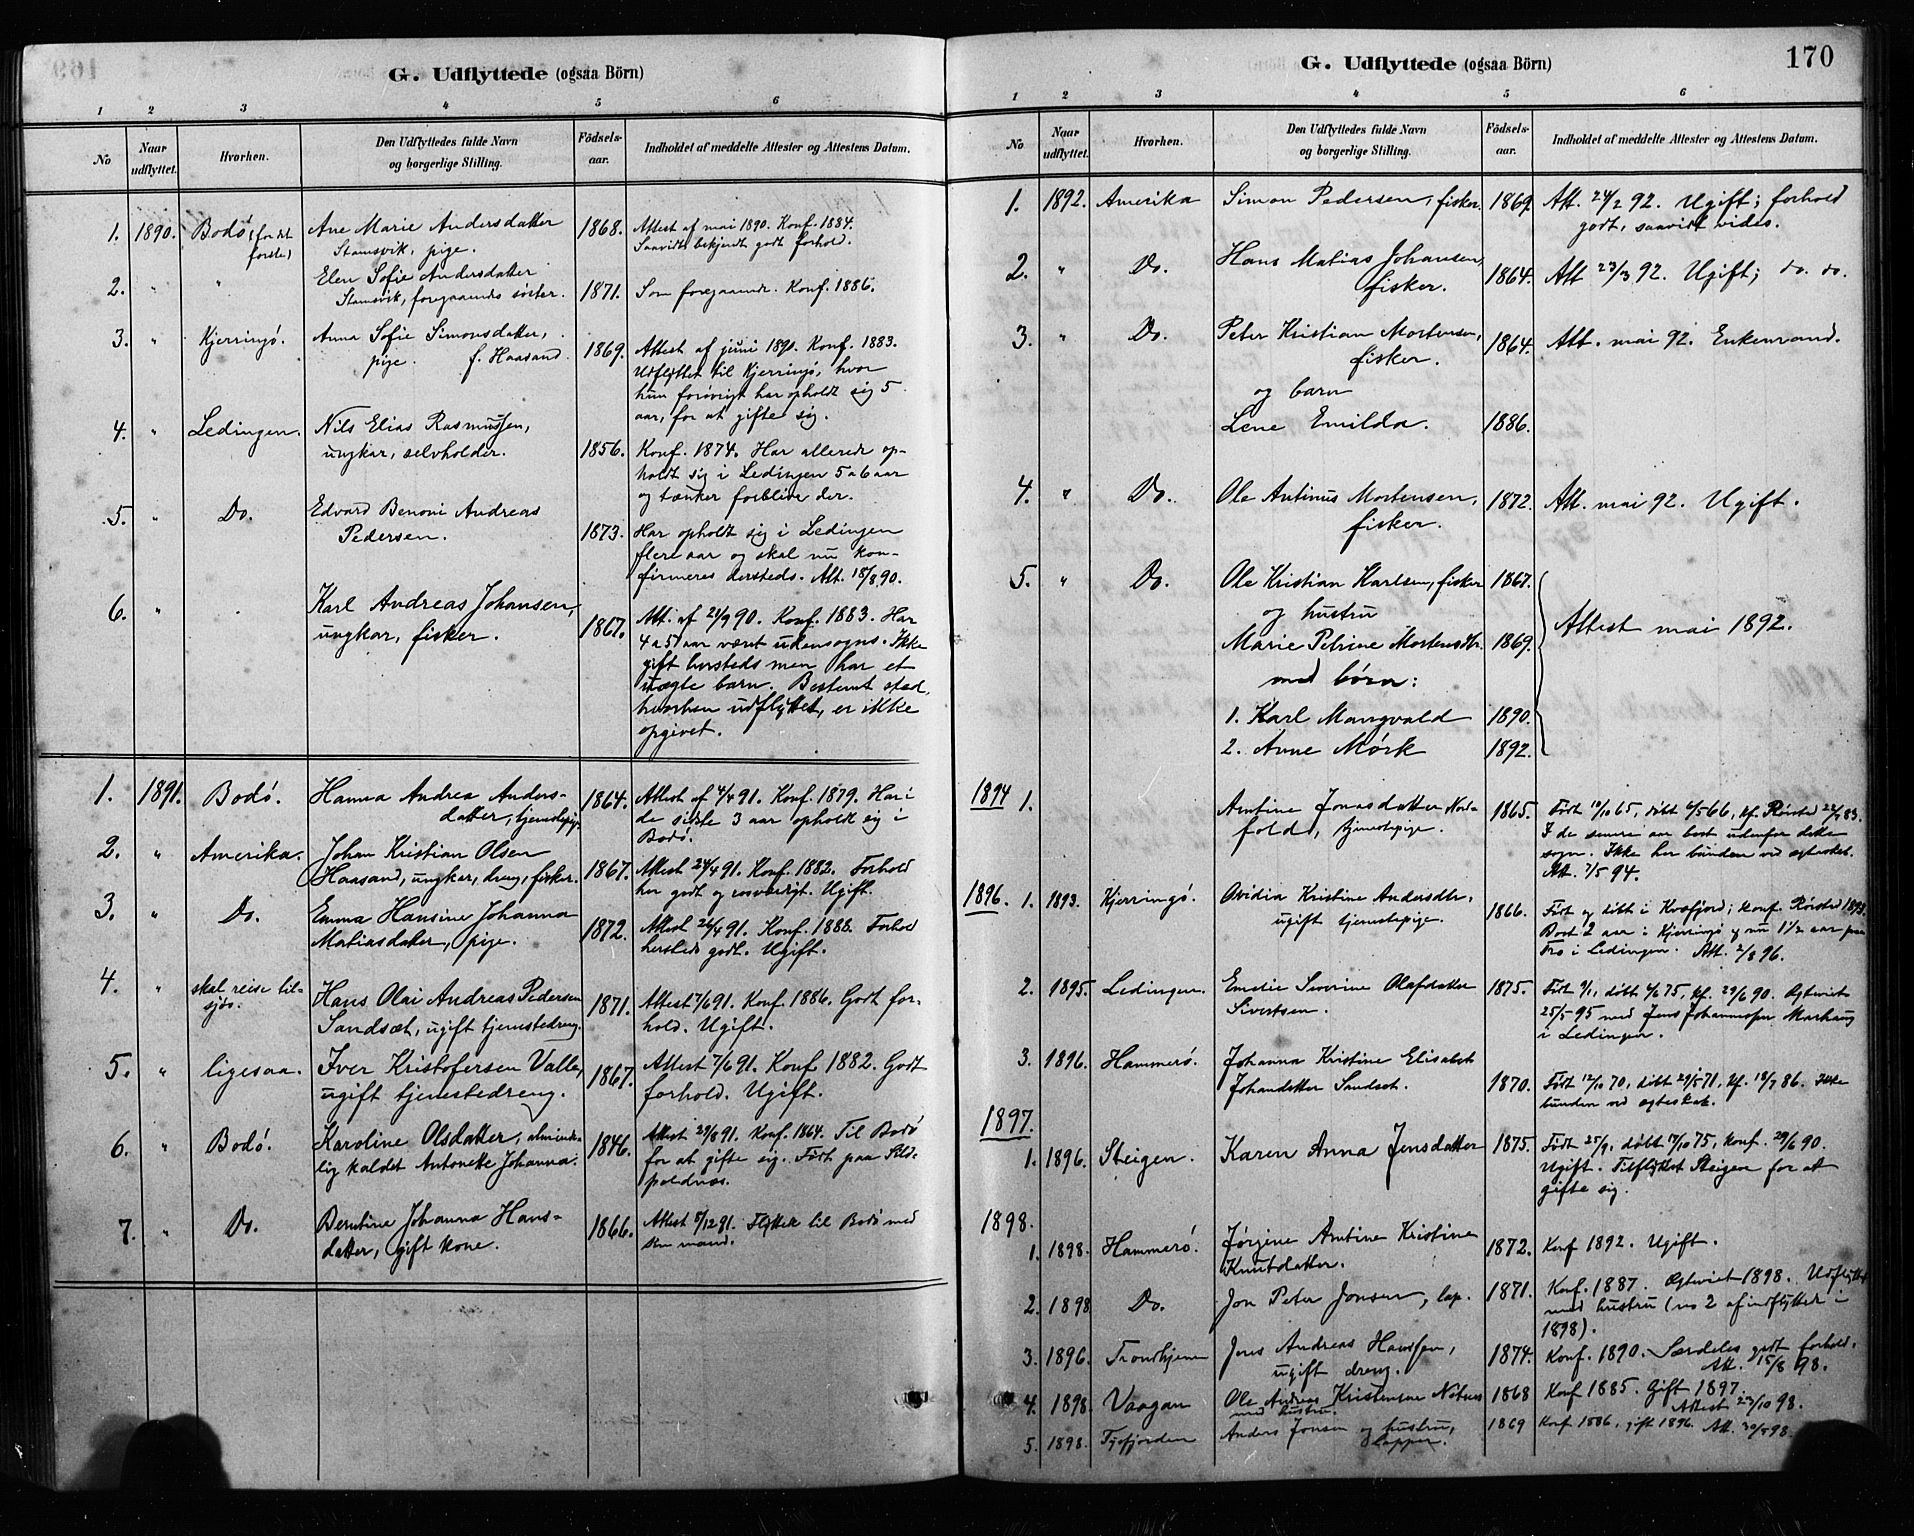 G. Udflyttede (ogsaa Börn)
1 2 3 4 5 6
No
Naar udflyttet.
Hvorhen.
Den Udflyttedes fulde Navn og borgerlige Stilling.
Födsels-aar.
Indholdet af meddelte Attester og Attestens Datum.
1. 1890. Bodø (for det første) Ane Marie Andersdatter 1868. Attest af mai 1890. Konf. 1884.
Stamsvik, pige. Saavidt bekjendt godt forhold.
2. " " Elen Sofie Andersdatter
Stamsvik, forgaaende søster. 1871. Som foregaaende. Konf. 1886.
3. " Kjerringø. Anna Sofie Simonsdatter,
pige. f. Haasand. 1869. Attest af juni 1890. Konf. 1883.
Udflyttet til Kjerringø, hvor
hun forøvrigt har opholdt sig 5
aar, for at gifte sig.
4. " Lødingen. Nils Elias Rasmussen,
ungkar, selvholder. 1856. Konf. 1874. Har allerede op-
holdt sig i Lødingen 5 a 6 aar
og tænker forblive der.
5. " Do. Edvard Benoni Andreas
Pedersen. 1873. Har opholdt sig i Lødingen
flere aar og skal nu kon-
firmeres dersteds. Att. 18/8 90.
6. " Karl Andreas Johansen,
ungkar, fisker. 1867. Att. af 21/9 90. Konf. 1883. Har
4 a 5 aar været udensogns. Ikke
gift hersteds men har et
uægte barn. Bestemt sted,
hvorhen udflyttet, er ikke
opgivet.
1. 1891. Bodø. Hanna Andrea Anders-
datter, tjenestepige. 1864. Attest af 4/4 91. Konf. 1879. Har i
de sidste 3 aar opholdt sig i
Bodø.
2. " Amerika. Johan Kristian Olsen
Haasand, ungkar, dreng, fisker. 1867. Attest 24/4 91. Konf. 1882. Forhold
her godt og rosværdigt. Ugift.
3. " Do. Emma Hansine Johanna
Matiasdatter, pige. 1872. Attest 26/4 91. Konf. 1888. Forhold
hersteds godt. Ugift.
4. " skal reise til-
sjøs. Hans Olai Andreas Pedersen
Sandsæt, ugift tjenestedreng. 1871. Attest 7/6 91. Konf. 1886. Godt for-
hold. Ugift.
5. " ligesaa. Iver Kristofersen Valle,
ugift tjenestedreng. 1867. Attest 7/6 91. Konf 1882. Godt
forhold. Ugift.
6. " Bodø. Karoline Olsdatter, alminde-
lig kaldet Antonette Johanna. 1846. Attest 29/8 91. Konf. 1864. Til Bodø
for at gifte sig. Født paa Sild-
poldnæs.
7. " Do. Berntine Johanna Hans-
datter, gift kone. 1866. Attest 5/12 91. Flytter til Bodø med
sin mand.
G. Udflyttede (ogsaa Börn)
170
1 2 3 4 5 6
No
Naar udflyttet.
Hvorhen.
Den Udflyttedes fulde Navn og borgerlige Stilling.
Födsels-aar.
Indholdet af meddelte Attester og Attestens Datum.
1. 1892. Amerika Simon Pedersen, fisker. 1869. Att. 24/2 92. Ugift; forhold
godt, saavidt vides.
2. " Do. Hans Matias Johansen,
fisker. 1864. Att 23/3 92. Ugift; do. do.
3. " Do. Peter Kristian Mortensen,
fisker. 1864. Att. mai 92. Enkemand.
og barn
Lene Emilda. 1886.
4. " Do. Ole Antinus Mortensen,
fisker. 1872. Att. mai 92. Ugift.
5. " Do. Ole Kristian Karlsen, fisker 1867.
og hustru
Marie Petrine Mortensdtr. 1869. Attest mai 1892.
med børn:
1. Karl Mangvald 1890.
2. Arne Mørk 1892.
1894 1. Antine Jonasdatter Nord-
fold, tjenestepige. 1865. Født 10/10 65, døbt 6/5 66, kf. Rørstad 22/7 83.
I de senere aar boet udenfor dette
sogn. Ikke her bunden ved egteskab.
Att. 1/5 94.
1896. 1. 1893. Kjerringø. Ovidia Kristine Andersdtr.,
ugift tjenestepige. 1866. Født og døbt i Kvæfjord; konf. Rørstad 1893.
Boet 2 aar i Kjerringø og nu 1 1/2 aar paa
Trø i Lødingen. Att. 2/8 96.
2. 1895. Lødingen. Emelie Severine Olafdatter
Sivertsen. 1875. Født 9/1, døbt 6/6 75, kf. 29/6 90. Egteviet
25/5 95 med Jens Johannesen Marhaug
i Lødingen.
3. 1896. Hammerø. Johanna Kristine Elisabet
Johandatter Sandset. 1870. Født 12/10 70, døbt 29/5 71, kf. 18/7 86. Ikke
bunden ved egteskab.
1897.
1. 1896. Steigen. Karen Anna Jensdatter 1875. Født 25/9, døbt 17/10 75, konf. 29/6 90.
Ugift. Tilflyttet Steigen for at
gifte sig.
1898.
1. 1898. Hammerø. Jørgine Antine Kristine
Knutdatter. 1872. Konf 1892. Ugift.
2. 1898 Do. Jon Peter Jonsen, lap. 1871. Konf. 1887. Egteviet 1898. Udflyttet
med hustru (no 2 af indflyttede i
1898).
3. 1896. Trondhjem Jens Andreas Hanssen,
ugift dreng. 1874. Konf. 1890. Særdeles godt forhold.
Att. 15/8 98.
4. 1898. Vaagan Ole Andreas Kristensen Notnæs
med hustru. 1868 Konf 1885. Gift 1897.
Attest 23/10 98.
5. 1898. Tysfjorden Anders Jonsen og hustru,
lapper. 1869 Konf 1886, gift 1896. Att. 30/5 98.